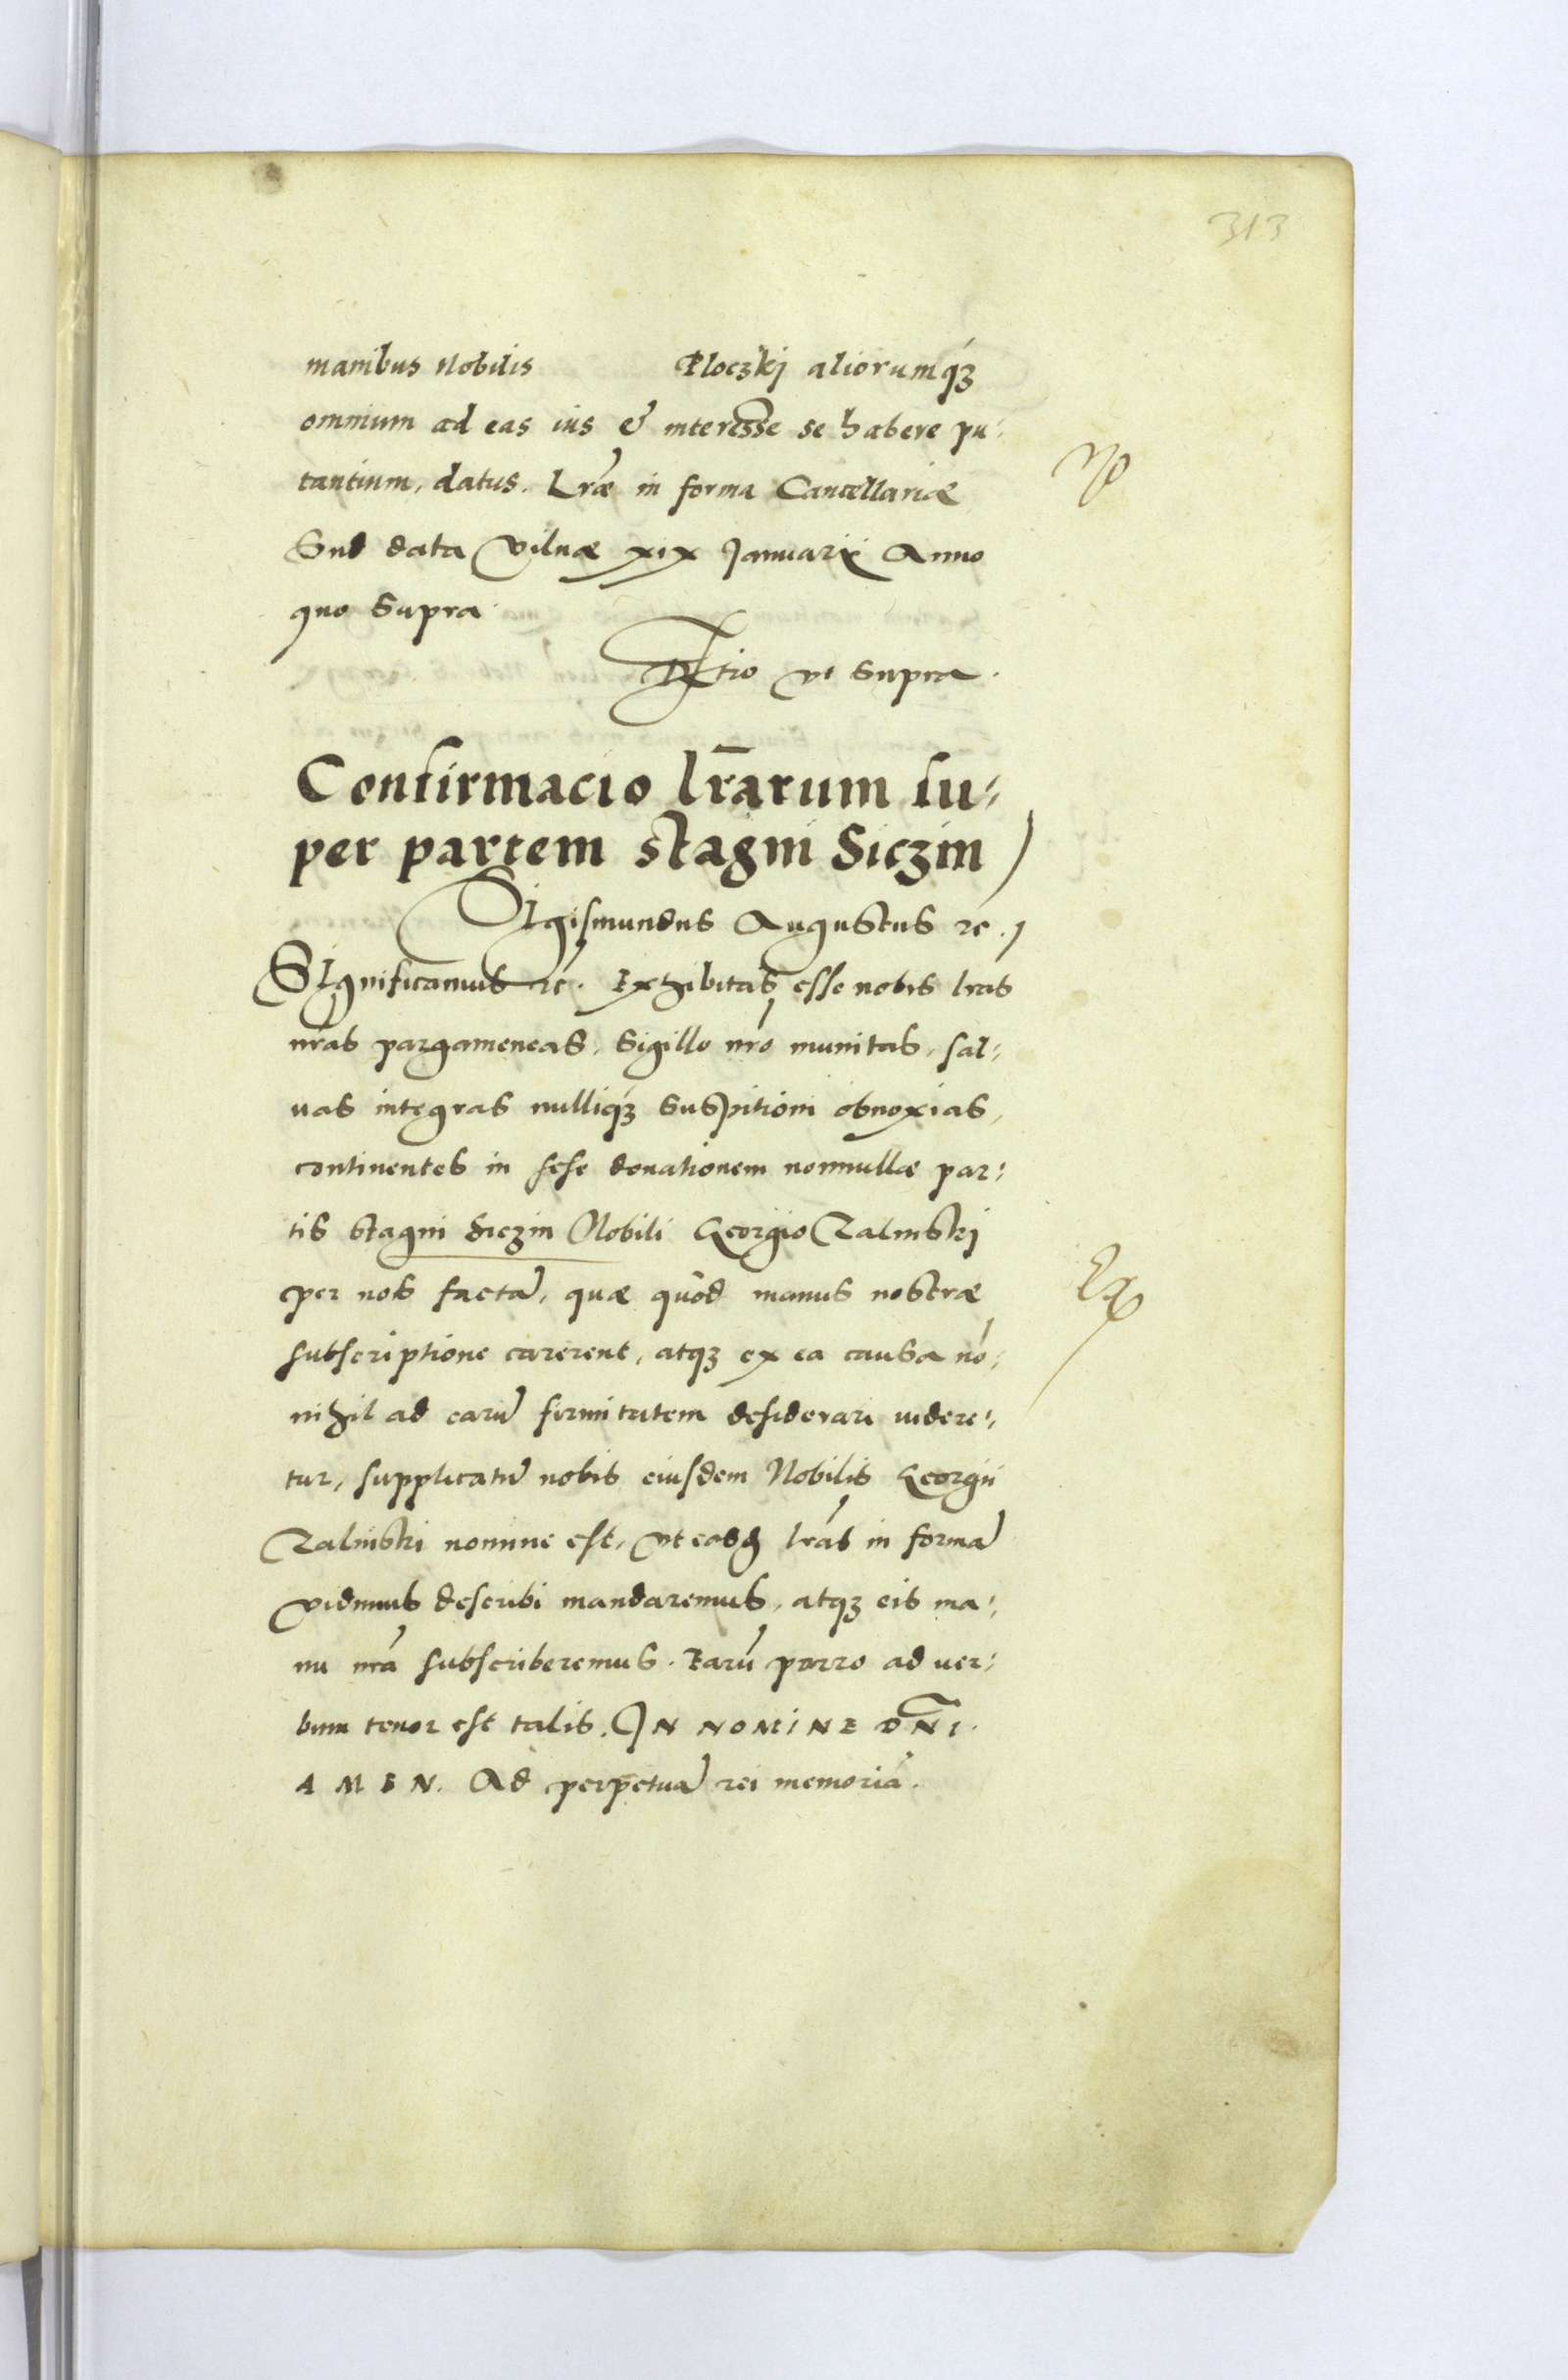 313
manibus Nobilis Ploczkj aliorumq́ʒ
omnium ad eas ius & interesse se habere pu-
tantium, datus. Lr̃æ in forma Cancellariæ
Sub data Vilnæ xix Januarij Anno
quo Supra.
Rtio vt Supra.
Confirmacio lr̃arum su-
per partem stagni Siczin
SIgismundus Augustus rc.
SIgnificamus rc. Exhibitas esse nobis lras
nr̃as pargameneas, Sigillo nr̃o munitas, sal-
uas integras nulliq́ʒ suspitioni obnoxias,
continentes in sese donationem nonnullæ par-
tis stagni Siczin Nobili Georgio Zalinskj
per nos factã, quæ quòd manus nostræ
subscriptione carerent, atqʒ ex ea causa nõ-
nihil ad earũ firmitatem desiderari videre-
tur, supplicatũ nobis eiusdem Nobilis Georgii
Zalinski nomine est, vt easd lr̃as in formã
vidimus describi mandaremus, atqʒ eis ma-
nu nr̃a subscriberemus. Earũ porro ad ver-
bum tenor est talis. IN NOMINE DÑI.
AMEN. Ad perpetuã rei memoriã.